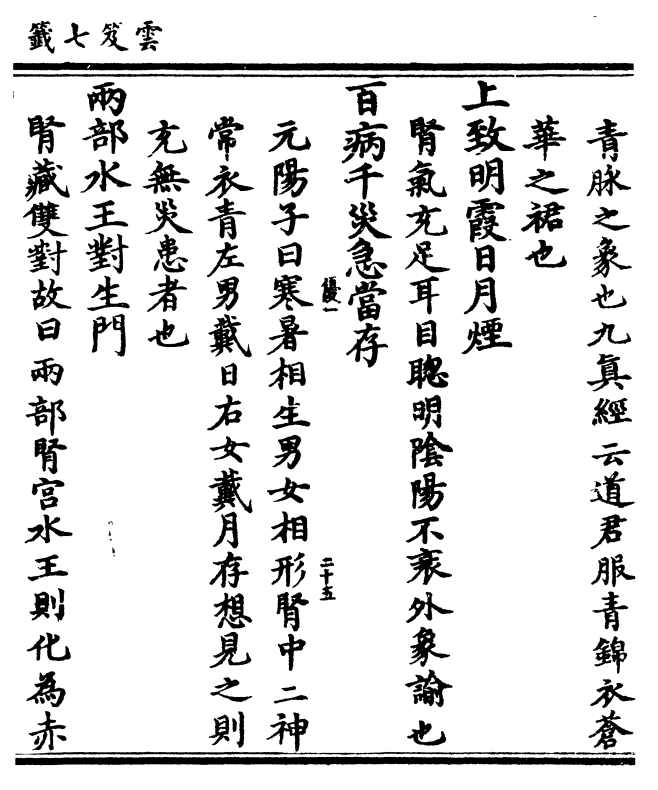 雲笈七籤
青脉之象也九真經云道君服青錦衣蒼
華之裙也
上致明霞日月煙
腎氣充足耳目聰明陰陽不衰外象諭也
百病千災急當存
優一
二十五
元陽子曰寒暑相生男女相形腎中二神
常衣青左男戴日右女戴月存想見之則
充無災患者也
兩部水王對生門
腎藏雙對故曰兩部腎宮水王則化為赤